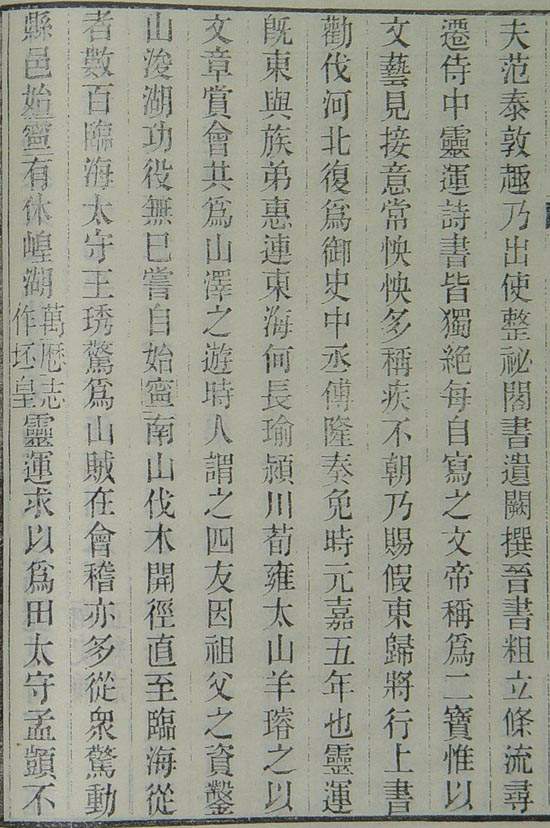 夫范泰敦趣乃出使整祕閣書遺闕撰晉書粗立條流尋
遷侍中靈運詩書皆獨絕每自寫之文帝稱爲二寶惟以
文藝見接意常怏怏多稱疾不朝乃賜假東歸將行上書
勸伐河北復爲御史中丞傅隆奏免時元嘉五年也靈運
旣東與族弟惠連東海何長瑜潁川荀雍太山羊璿之以
文章賞會共爲山澤之遊時人謂之四友因祖父之資鑿
山浚湖功役無已嘗自始寧南山伐木開徑直至臨海從
者數百臨海太守王琇驚爲山賊在會稽亦多從衆驚動
縣邑始寧有休崲湖萬歷志作坯皇靈運求以爲田太守孟顗不